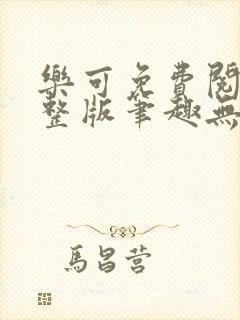 樂可免費閱
整版筆趣無
馬昌营